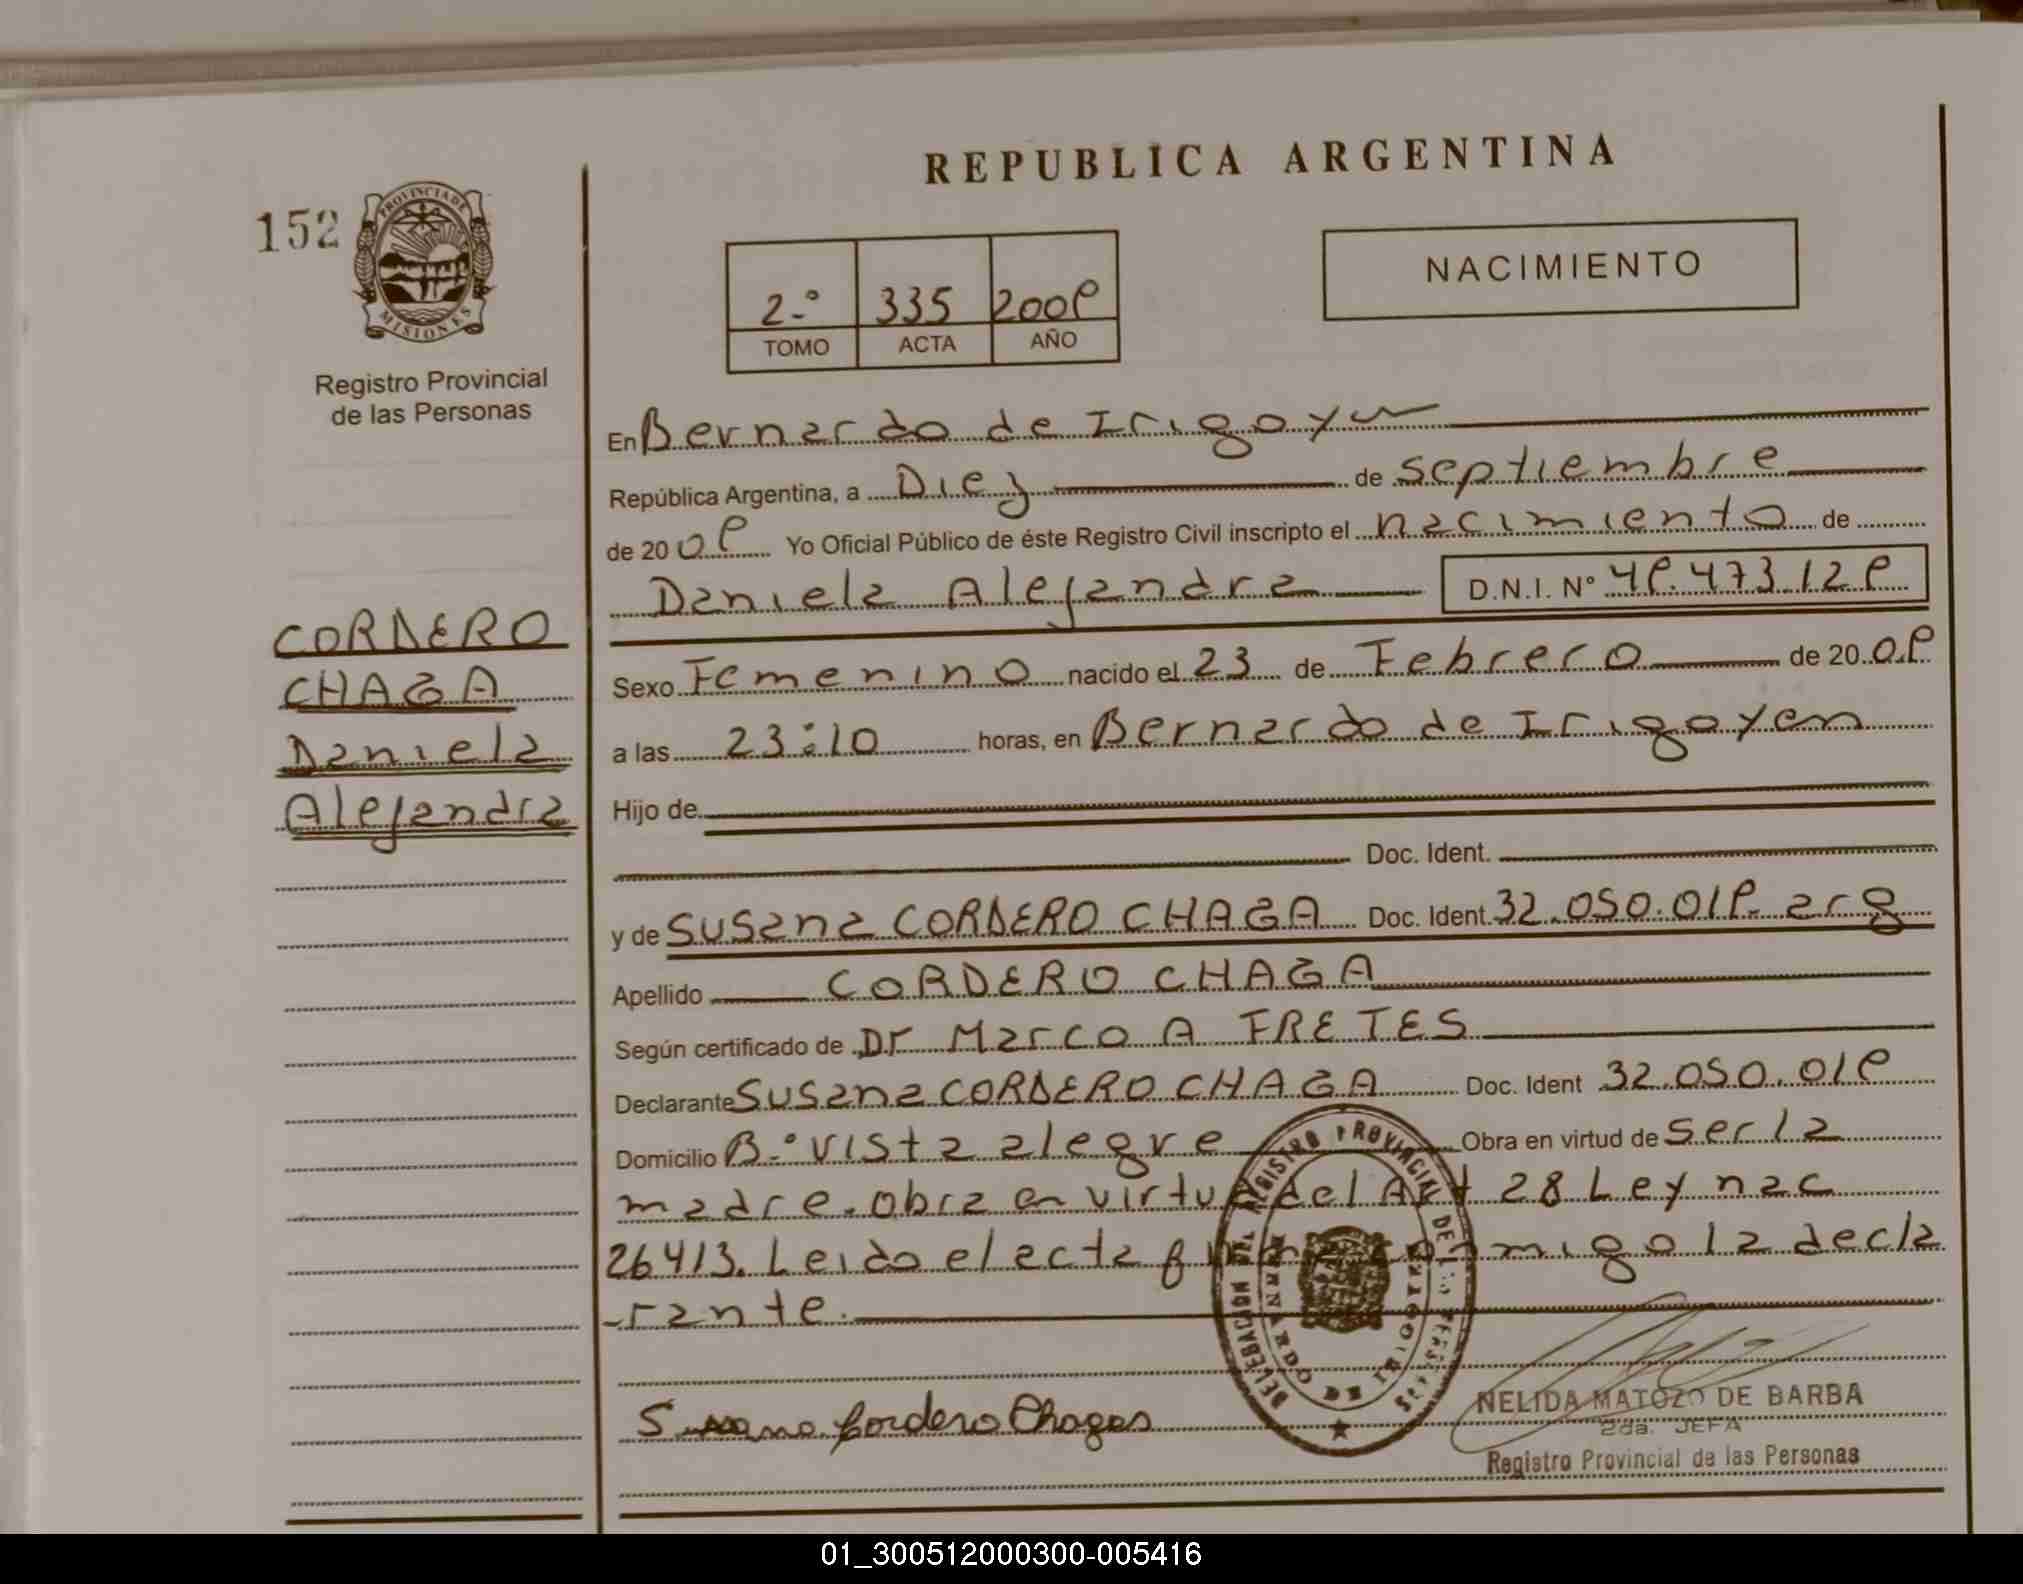 REPUBLICA ARGENTINA
152
PROVINCIA DE MISIONES
2.° 335 2009
TOMO ACTA AÑO
NACIMIENTO
Registro Provincial
de las Personas
En Bernardo de Irigoyen
República Argentina, a Diez de septiembre
de 20 09 Yo Oficial Público de éste Registro Civil inscripto el nacimiento de
Daniela Alejandra D.N.I. N° 49.473.129
CORDERO
CHAGA
Daniela
Alejandra
Sexo Femenino nacido el 23 de Febrero de 20 09
a las 23:10 horas, en Bernardo de Irigoyen
Hijo de
Doc. Ident.
y de Susana CORDERO CHAGA Doc. Ident. 32.050.019. arg
Apellido CORDERO CHAGA
Según certificado de Dr Marco A FRETES
Declarante Susana CORDERO CHAGA Doc. Ident 32.050.019
Domicilio B.° Vista alegre Obra en virtud de ser la
madre. obra en virtud del Art 28 Ley nac
26413. Leido el acta firma conmigo la decla
-rante.
DELEGACION DEL REGISTRO PROVINCIAL DE LAS PERSONAS
BERNARDO DE IRIGOYEN
Susana Cordero Chagas
NELIDA MATOZO DE BARBA
2da. JEFA
Registro Provincial de las Personas
01_300512000300-005416